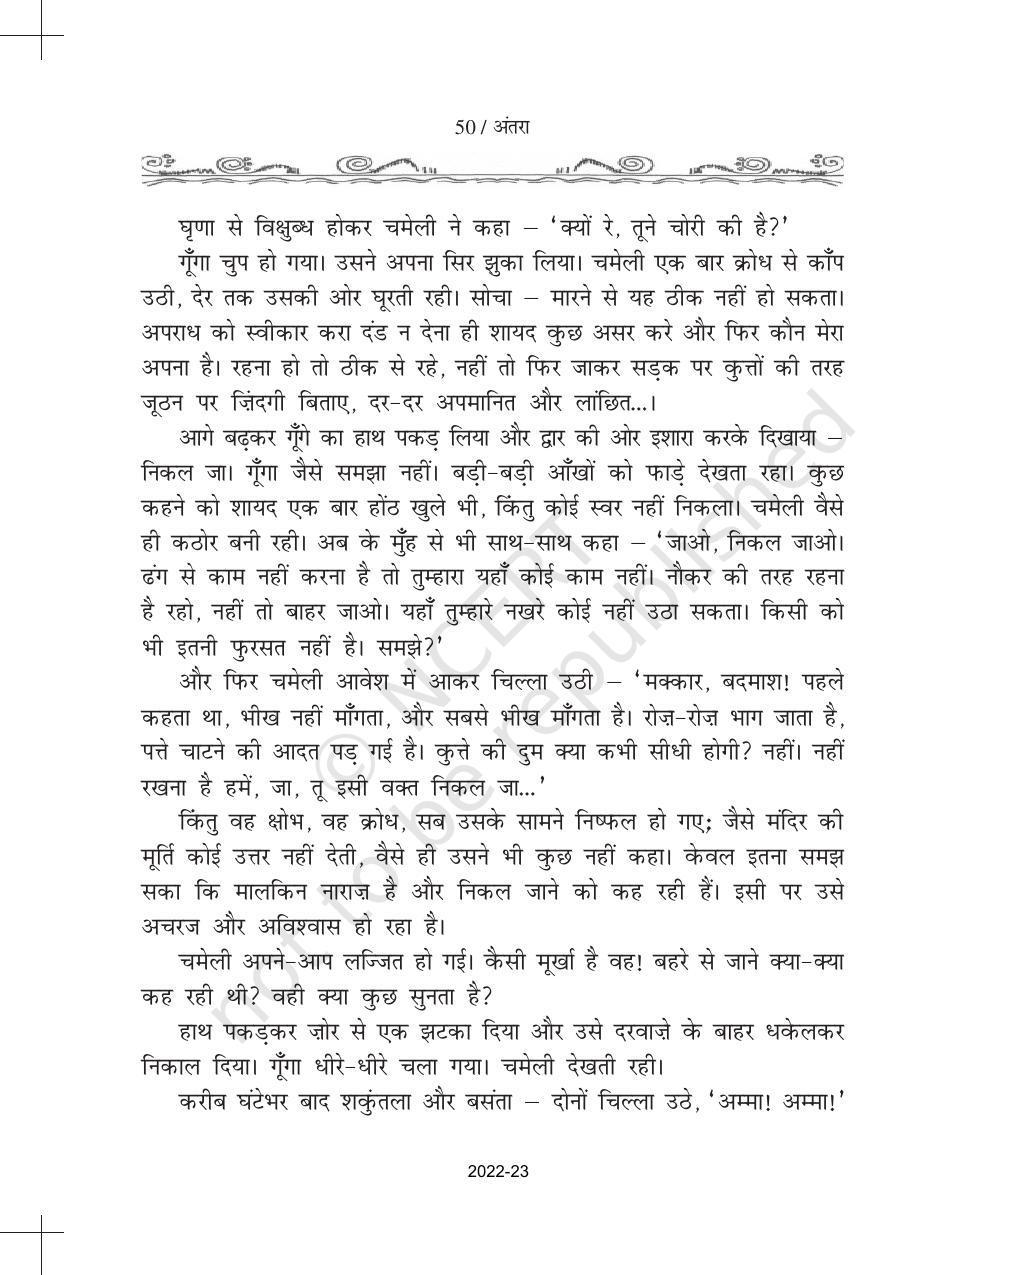 50 / अंतरा
घृणा से विक्षुब्ध होकर चमेली ने कहा – ‘क्यों रे, तूने चोरी की है?’
गूँगा चुप हो गया। उसने अपना सिर झुका लिया। चमेली एक बार क्रोध से काँप
उठी, देर तक उसकी ओर घूरती रही। सोचा – मारने से यह ठीक नहीं हो सकता।
अपराध को स्वीकार करा दंड न देना ही शायद कुछ असर करे और फिर कौन मेरा
अपना है। रहना हो तो ठीक से रहे, नहीं तो फिर जाकर सड़क पर कुत्तों की तरह
जूठन पर ज़िंदगी बिताए, दर-दर अपमानित और लांछित...।
आगे बढ़कर गूँगे का हाथ पकड़ लिया और द्वार की ओर इशारा करके दिखाया –
निकल जा। गूँगा जैसे समझा नहीं। बड़ी-बड़ी आँखों को फाड़े देखता रहा। कुछ
कहने को शायद एक बार होंठ खुले भी, किंतु कोई स्वर नहीं निकला। चमेली वैसे
ही कठोर बनी रही। अब के मुँह से भी साथ-साथ कहा – ‘जाओ, निकल जाओ।
ढंग से काम नहीं करना है तो तुम्हारा यहाँ कोई काम नहीं। नौकर की तरह रहना
है रहो, नहीं तो बाहर जाओ। यहाँ तुम्हारे नखरे कोई नहीं उठा सकता। किसी को
भी इतनी फुरसत नहीं है। समझे?’
और फिर चमेली आवेश में आकर चिल्ला उठी – ‘मक्कार, बदमाश! पहले
कहता था, भीख नहीं माँगता, और सबसे भीख माँगता है। रोज़-रोज़ भाग जाता है,
पत्ते चाटने की आदत पड़ गई है। कुत्ते की दुम क्या कभी सीधी होगी? नहीं। नहीं
रखना है हमें, जा, तू इसी वक्त निकल जा...’
किंतु वह क्षोभ, वह क्रोध, सब उसके सामने निष्फल हो गए; जैसे मंदिर की
मूर्ति कोई उत्तर नहीं देती, वैसे ही उसने भी कुछ नहीं कहा। केवल इतना समझ
सका कि मालकिन नाराज़ है और निकल जाने को कह रही हैं। इसी पर उसे
अचरज और अविश्वास हो रहा है।
चमेली अपने-आप लज्जित हो गई। कैसी मूर्खा है वह! बहरे से जाने क्या-क्या
कह रही थी? वही क्या कुछ सुनता है?
हाथ पकड़कर ज़ोर से एक झटका दिया और उसे दरवाज़े के बाहर धकेलकर
निकाल दिया। गूँगा धीरे-धीरे चला गया। चमेली देखती रही।
करीब घंटेभर बाद शकुंतला और बसंता – दोनों चिल्ला उठे, ‘अम्मा! अम्मा!’
© NCERT
not to be republished
2022-23